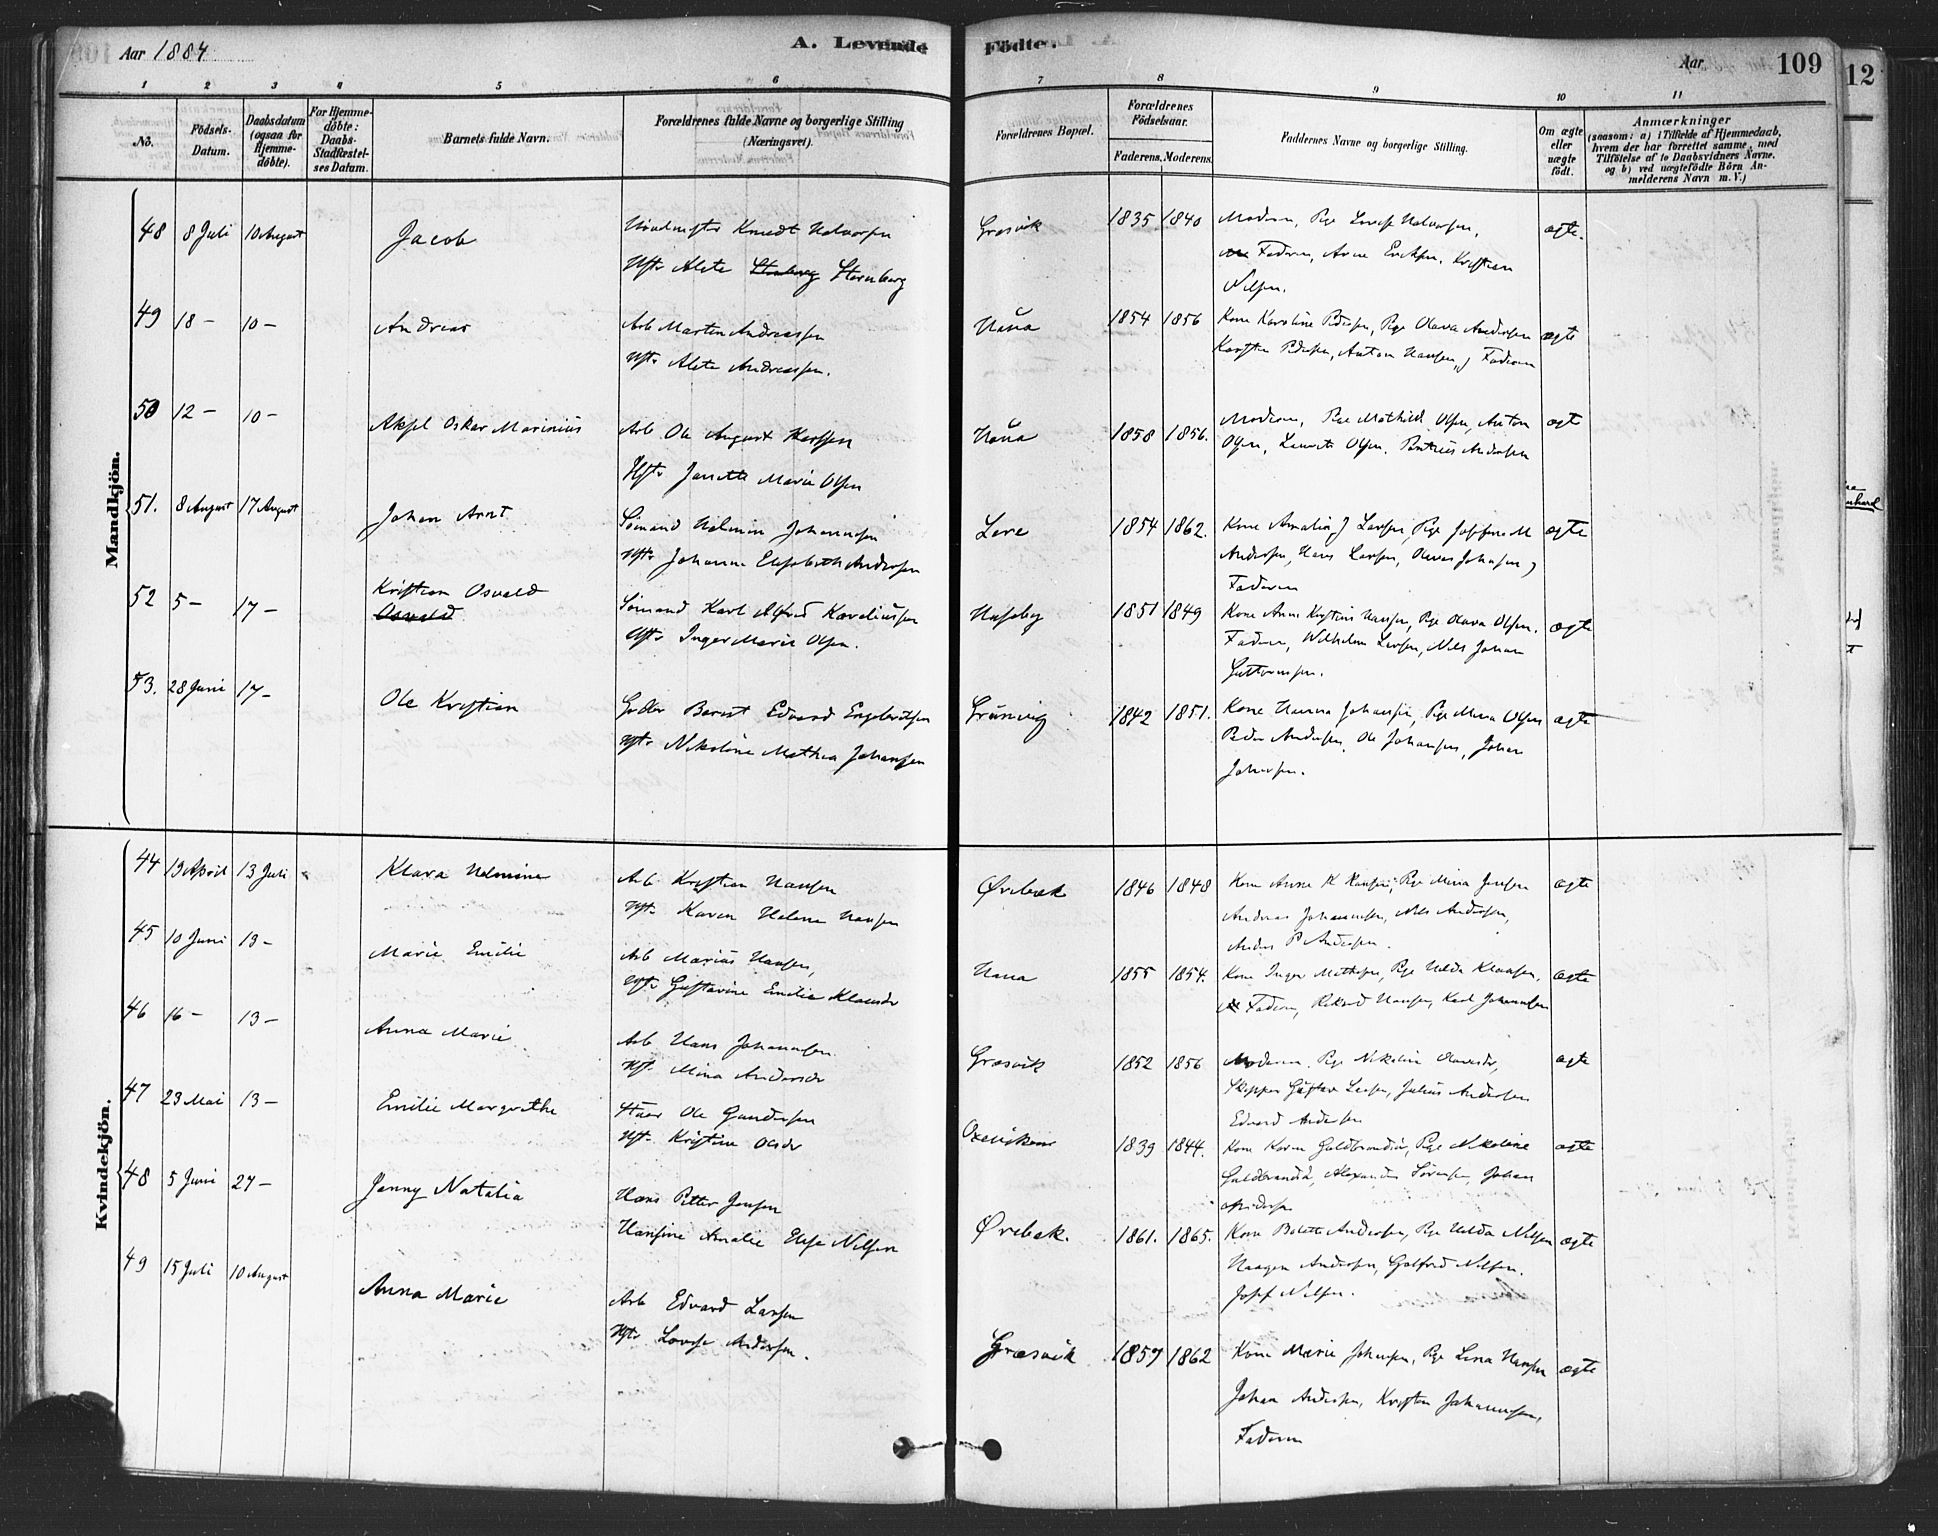 Aar 1884
A. Levende
Födte.
Aar
109
12
1 2 3 4 5 6 7 8 9 10 11
No.
Födsels-Datum.
Daabsdatum (ogsaa for Hjemme-döbte).
For Hjemme-döbte: Daabs-Stadfæstel-ses Datum.
Barnets fulde Navn.
Forældrenes fulde Navne og borgerlige Stilling (Næringsvei).
Forældrenes Bopæl.
Forældrenes Födselsaar.
Faderens. Moderens.
Faddernes Navne og borgerlige Stilling.
Om ægte eller uægte födt.
Anmærkninger
(saasom: a) i Tilfælde af Hjemmedaab,
hvem der har forrettet samme, med
Tilföielse af to Daabsvidners Navne,
og b) ved uægtefödte Börn An-
melderens Navn m. V.)
Mandkjön.
48 8 Juli 10 August Jacob
Knudt Halvorsen
Hstr Alete Stenberg Stenberg
Græsvik 1835 1840 Moderen, Pige Halvorsen,
Faderen, Arne Kristian
Nilsen.
ægte.
49 18 – 10 – Andreas
Arb Martin Andreassen
Hstr Alete Andreassen.
Haua 1854 1856 Kone Karoline Pedersen, Pige Olava Andersen
Karsten Pedersen, Anton Hansen, Faderen
ægte
50 12 – 10 – Aksel Oskar Marinius
Arb Ole August
Hstr Janette Marie Olsen
Haua 1858 1856. Moderen, Pige Mathild Olsen, Anton
Olsen, Olsen, Andersen
ægt
51. 8 August 17 August Johan Arnt
Sömand Johannesen
Hstr Johanne Elisabeth Andersen
Lere 1854 1862. Kone Amalia J Larsen, Pige Josefine M
Andersen, Hans Larsen, Johansen,
Faderen
ægte
52 5 – 17 – Kristian Osvald
Osvald
Sömand Karl Alfred Kareliussen
Hstr Inger Marie Olsen.
Hasseby 1851 1849 Kone Anne Kristine Hansen, Pige Olava Olsen.
Faderen, Wilhelm Larsen, Nils Johan
Guttormsen.
ægte
53. 28 Juni 17 – Ole Kristian
Berent Edvard Engebretsen
Hstr Nikoline Mathea Johansen
1842 1851. Kone Hanna Johansen, Pige Mina Olsen
Peder Andersen, Ole Johansen, Johan
Johansen.
ægte
Kvindekjön.
44 19 April 13 Juli Klara
Arb Kristian Hansen
Hstr Karen Helene Hansen
Örebæk 1846 1848 Kone Anne K Hansen, Pige Mina Jensen
Andreas Johannesen, Nils Andersen,
Anders P Andersen.
ægte
45 10 Juni 13 – Marie Emilie
Arb Marius Hansen,
Hstr Gustavine Emilie Klausdr
Haua 1855 1854. Kone Inger Mathisen, Pige Hilda Klausen,
Faderen, Rikard Hansen, Karl Johannesen
ægte
46 16 – 13 – Anna Marie
Arb Hans Johannesen
Hst. Mina Andersdr
Græsvik 1852 1856 Moderen, Pige Nikoline
Skipper Gustav Julius Andersen
Edvard Andersen
ægte
47 23 Mai 13 – Emilie Margrethe
Ole Gundersen
Hst. Kristine Olsdr
1839 1844. Kone Karen Guldbrandsen, Pige Nikoline
Guldbrandsd, Alexander Sörensen, Johan
Andersen
ægte
48 5 Juni 27 – Janny Natalia
Hans Petter Jensen
Hansine Amalie Elise Nilsen
Örebek. 1861. 1865. Kone Andersen, Pige Hilda Nilsen
Haagen Andersen, Nilsen.
Josef Nilsen.
ægte
49 15 Juli 10 August Anna Marie
Arb Edvard Larsen
Hstr Lovise Andersen.
Græsvik 1857 1862 Kone Marie Johansen, Pige Lina Hansen
Johan Andersen, Kristen Johannesen,
Faderen
ægte